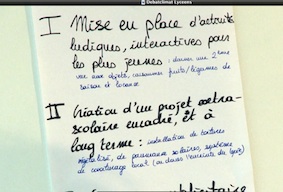 Debatclimat Lyceens
I Mise en place d'activités
ludiques, interactives pour
les plus jeunes : donner une 2ème
vie aux objets, consommer fruits/légumes de
saison et locaux
II Création d'un projet extra-
scolaire encadré, et à
long terme : installation de toitures
végétalisé, de panneaux solaires, systèmes
de covoiturage local (ou dans l'enceinte du lycée)